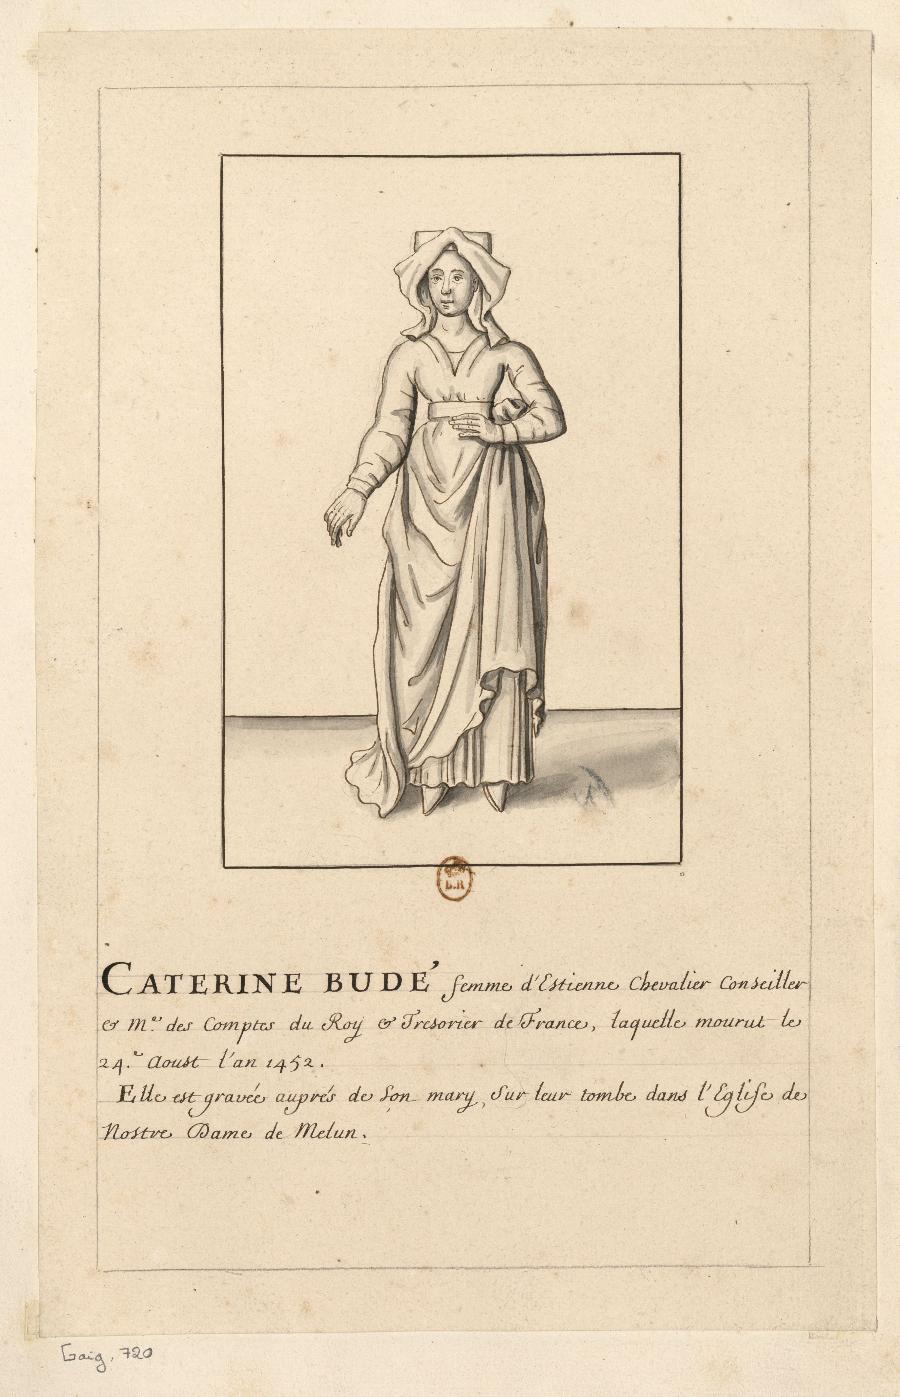 CATERINE BUDÉ femme d'Estienne Chevalier Conseiller
& Mᵉ. des Comptes du Roy & Tresorier de France, laquelle mourut le
24.ᵉ Aoust l'an 1452.
Elle est gravée auprés de son mary, sur leur tombe dans l'Eglise de
Nostre Dame de Melun.
B.R
Gaig. 720